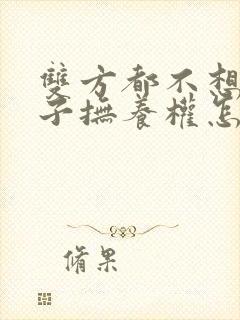 雙方都不想
子撫養權怎
脩果